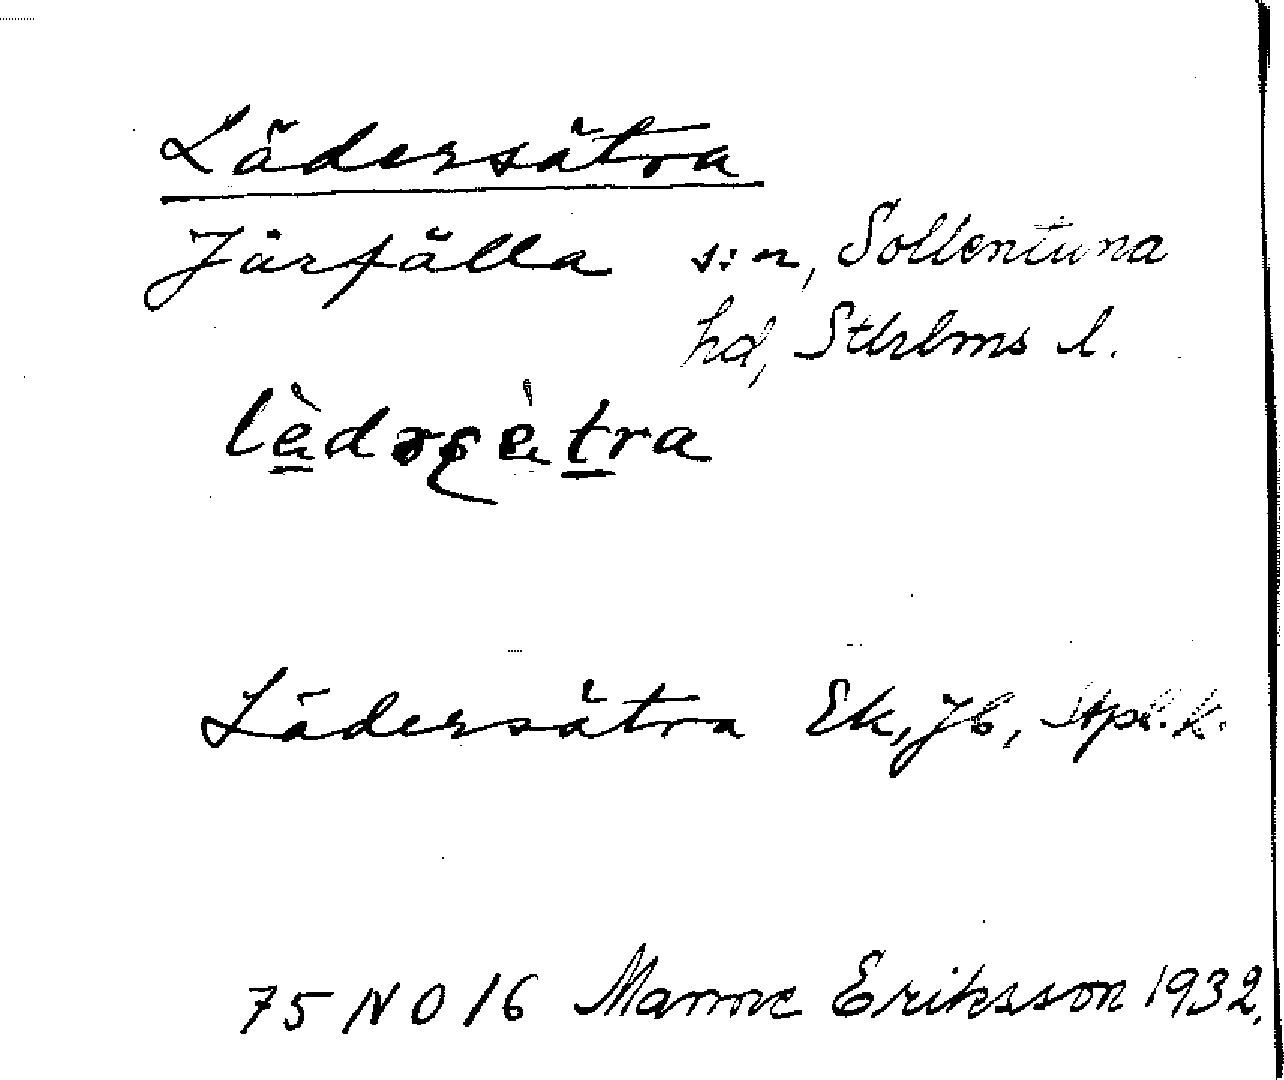 Lädersätra
Järfälla s:n, Sollentuna
hd, Sthlms l.
Lädersätra Ek, Jb, Stpl. k.
75 NO 16 Manne Eriksson 1932.